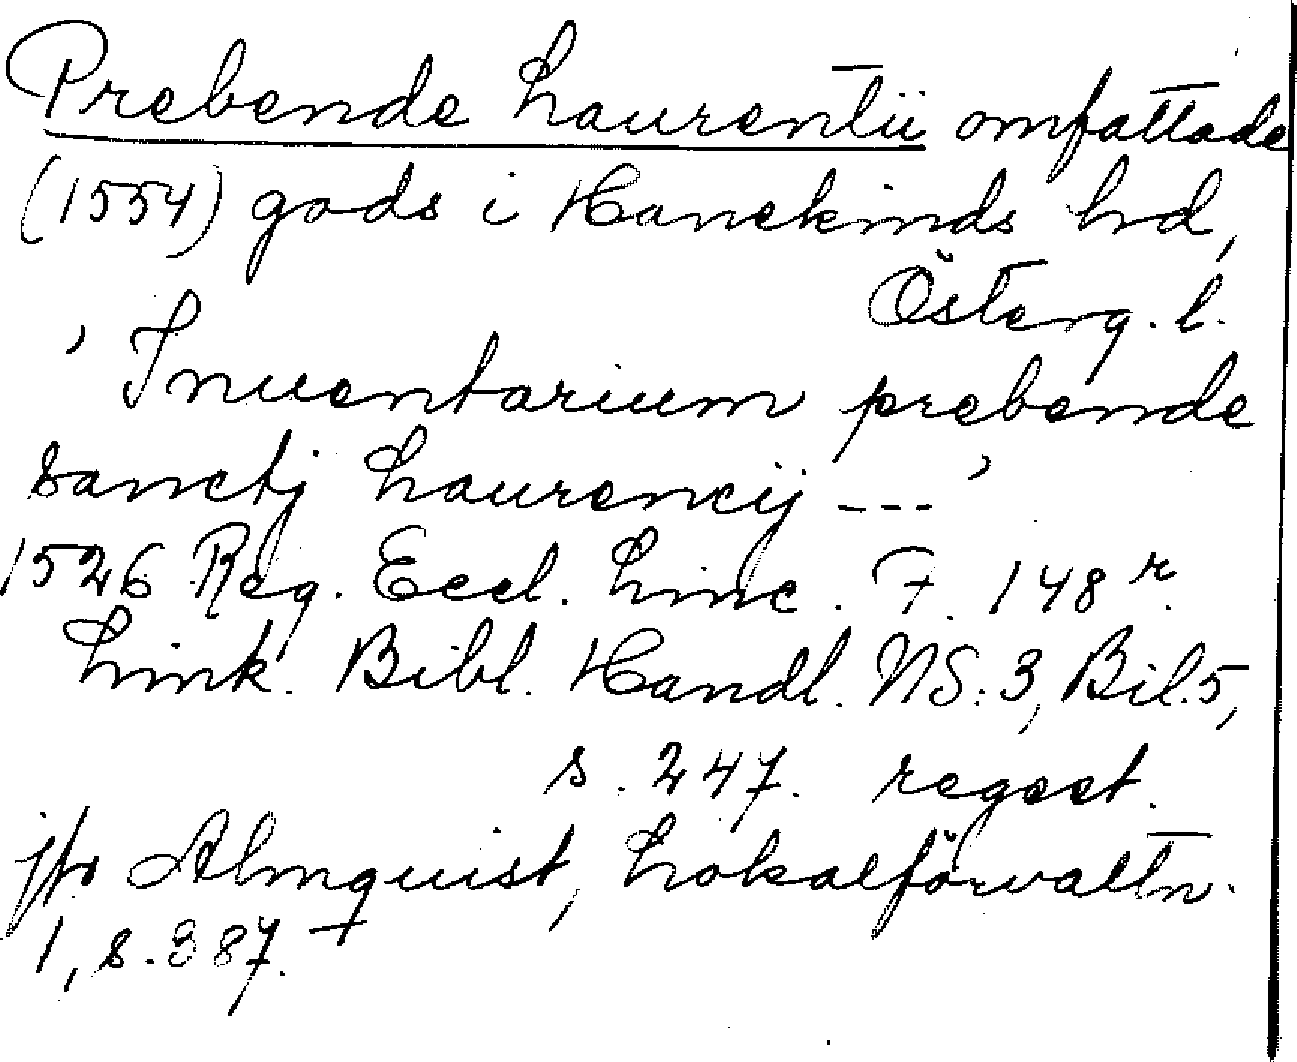 Prebende Laurentii omfattade
(1554) gods i Hanekinds hd,
Österg. l.
' Inuentarium prebende
sanctj Laurencij --- '
1526 Reg. Eccl. Linc. F. 148 r.
Link. Bibl. Handl. NS. 3, Bil. 5,
s. 247. regest.
jfr Almquist, Lokalförvaltn.
1, s. 387. +